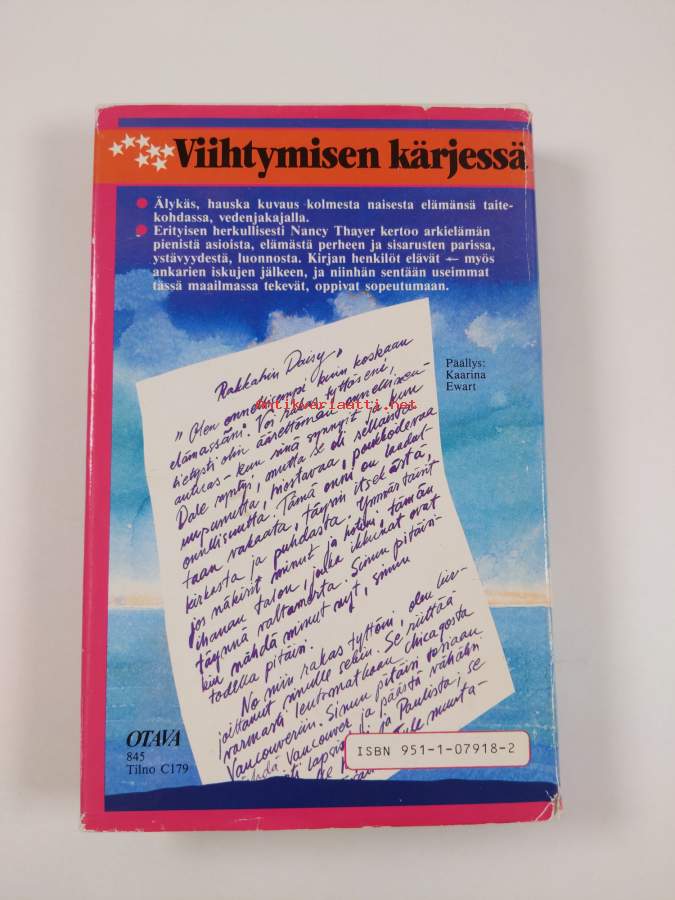 Viihtymisen kärjessä
Älykäs, hauska kuvaus kolmesta naisesta elämänsä taite-
kohdassa, vedenjakajalla.
Erityisen herkullisesti Nancy Thayer kertoo arkielämän
pienistä asioista, elämästä perheen ja sisarusten parissa,
ystävyydestä, luonnosta. Kirjan henkilöt elävät — myös
ankarien iskujen jälkeen, ja niinhän sentään useimmat
tässä maailmassa tekevät, oppivat sopeutumaan.
Päällys:
Kaarina
Ewart
Rakkahin Daisy,
"Olen onnellisempi kuin koskaan
elämässäni. Voi rakas tyttöseni,
tietysti olin äärettömän onnellinen
auttaas - kun sinä synnyit ja kun
Dale syntyi, mutta se oli sellaista
uupunutta, hiostavaa, poukkoilevaa
onnellisuutta. Tämä onni on laadul-
taan vakaata, täynnä itseluottamusta,
kirkasta ja puhdasta. Ymmärtäisit
jos näkisit minut ja hotellin, tämän
ihanan talon, jonka ikkunat ovat
täynnä valtamerta. Sinun pitäisi-
kin nähdä minut nyt, sinun
todella pitäisi.
No niin rakas tyttöni, olen kir-
joittanut sinulle sekin. Se riittää
varmasti lentomatkaan Chicagosta
Vancouveriin. Sinun pitäisi varjaan
Vancouver ja päästä vähähn
lapsi ja Paulista; se
tule muuta-
antikvariaatti.net
OTAVA
845
Tilno C179
ISBN 951-1-07918-2